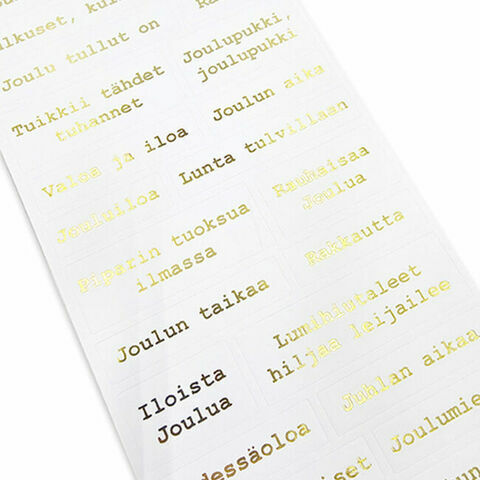 Joulu tullut on
Joulupukki,
joulupukki
Tuikkii tähdet
tuhannet
Joulun aika
Valoa ja iloa
Lunta tulvillaan
Jouluiloa
Rauhaisaa
Joulua
Piparin tuoksua
ilmassa
Rakkautta
Joulun taikaa
Lumihiutaleet
hiljaa leijailee
Iloista
Joulua
Juhlan aikaa